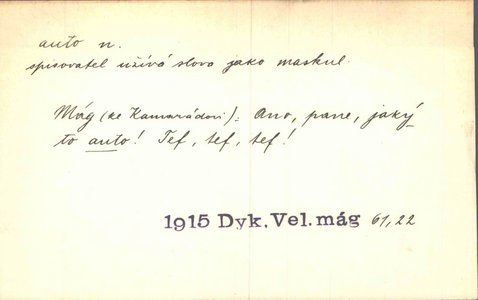 auto n.
spisovatel užívá slova jako maskul.
Mág (ke Kamarádovi): Ano, pane, jaký
to auto! Tef, tef, tef!
1915 Dyk, Vel. mág 61,22